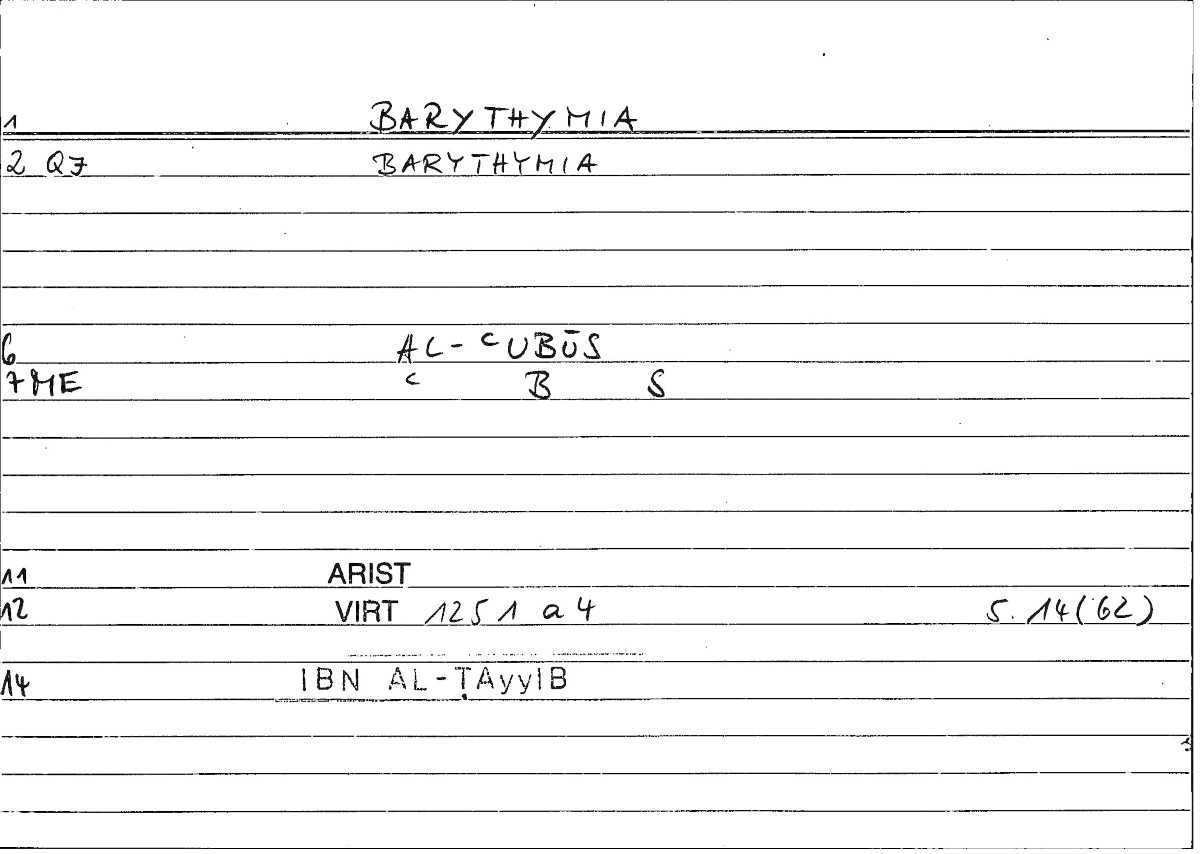 1 BARYTHYMIA
2 Q7 BARYTHYMIA
6 AL-ᶜUBŪS
7 ME ᶜ B S
11 ARIST
12 VIRT 1251 a 4 S. 14(62)
14 IBN AL-ṬAyyIB